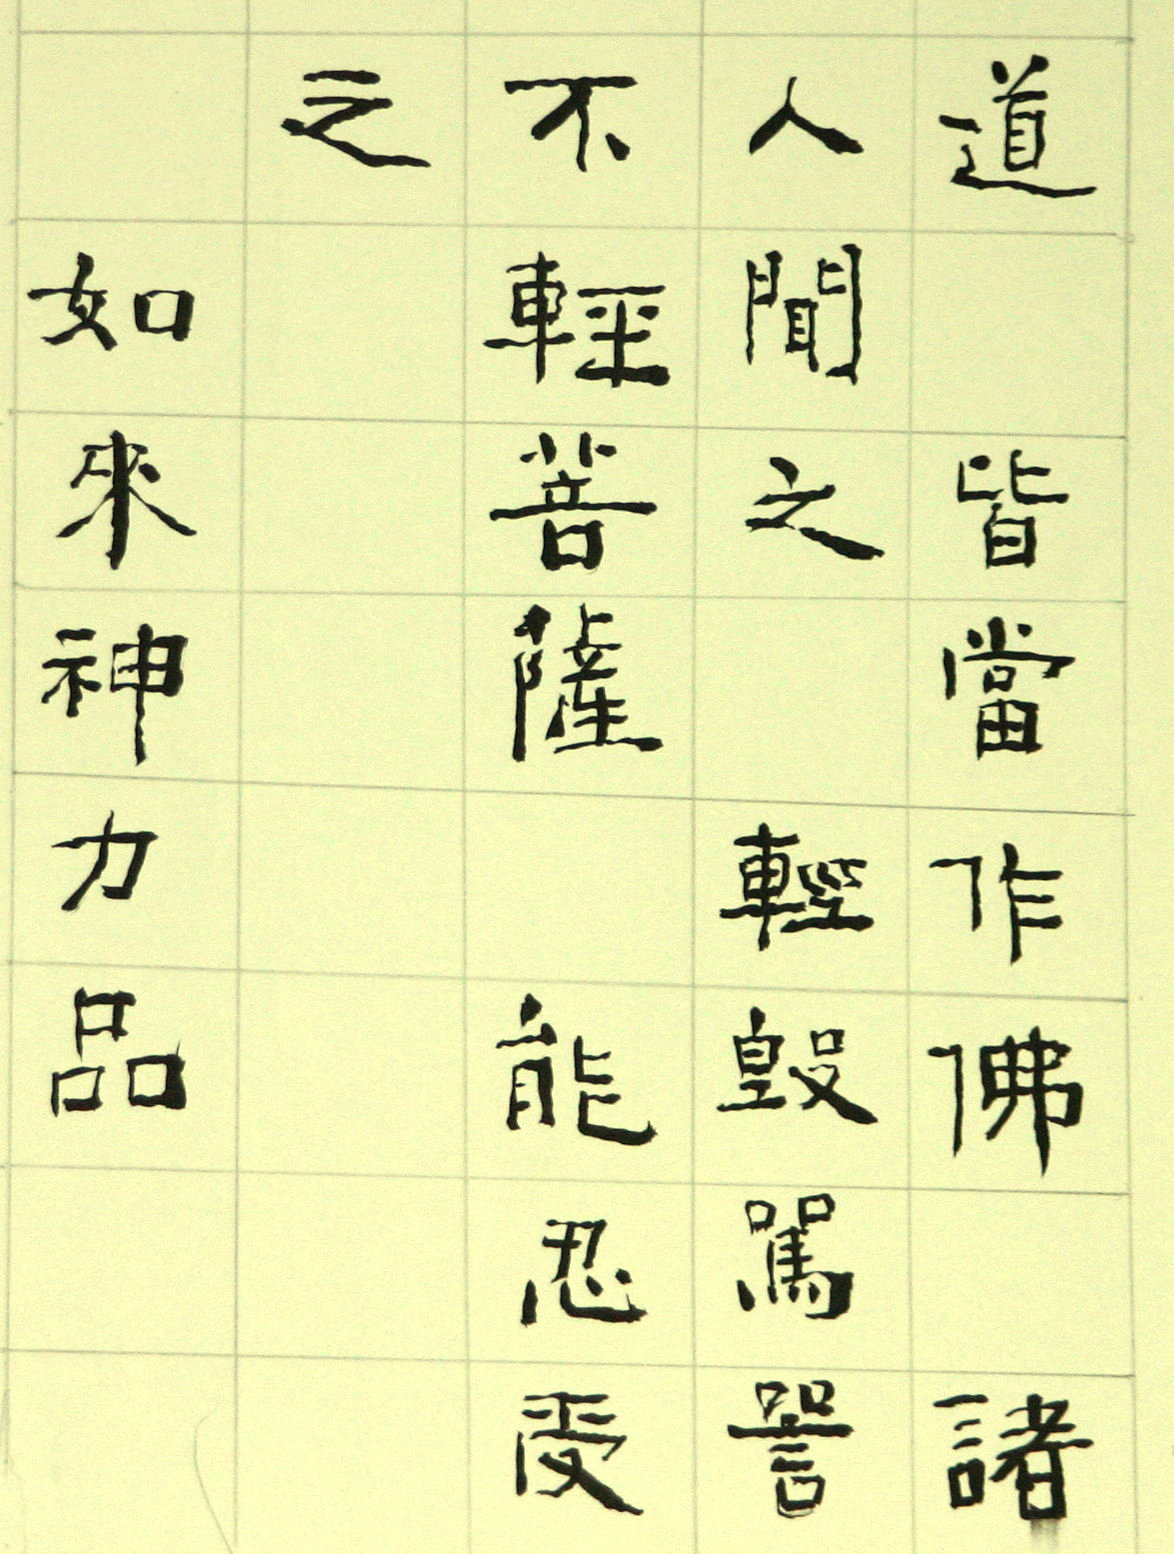 道 皆當作佛 諸
人聞之 輕毀駡詈
不輕菩薩 能忍受
之
如來神力品